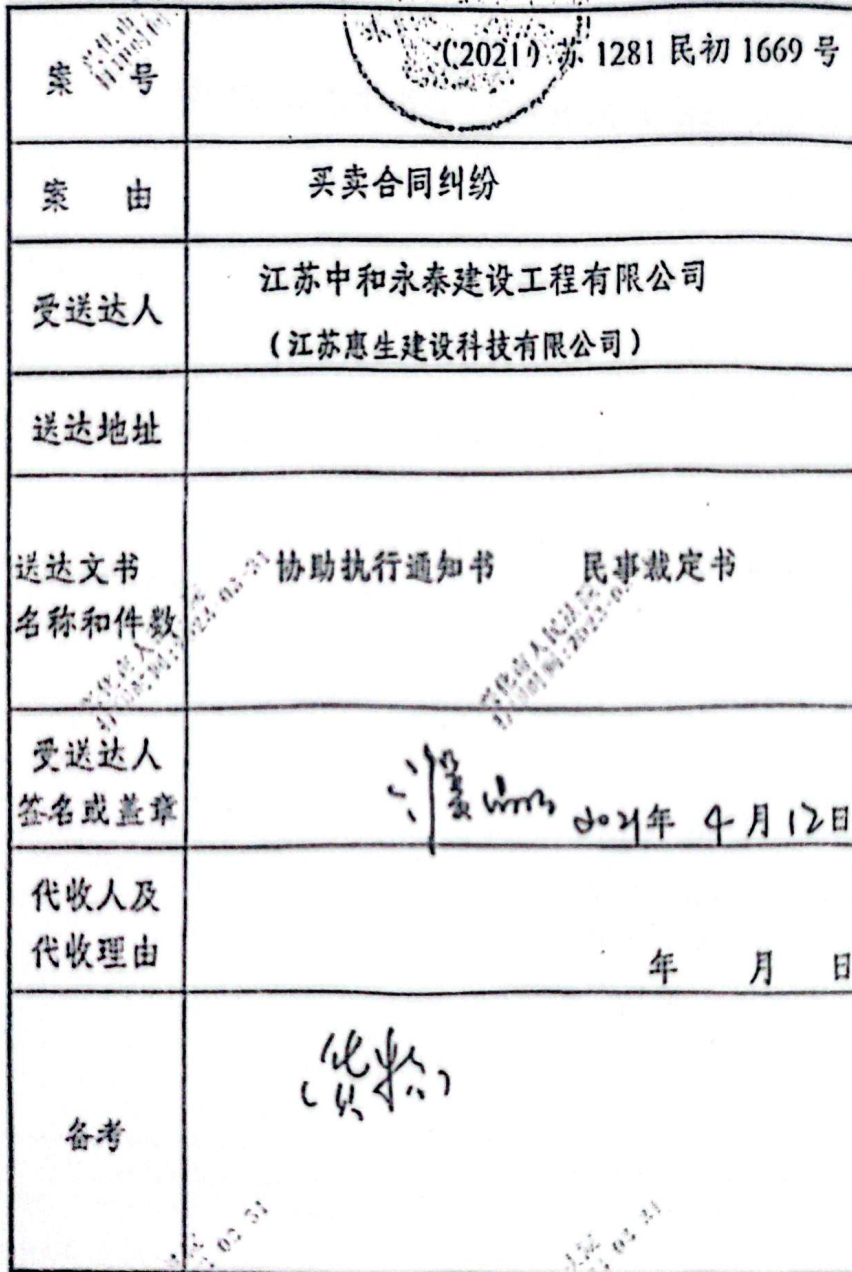 案 号
(2021)苏 1281 民初 1669 号
案 由
买卖合同纠纷
受送达人
江苏中和永泰建设工程有限公司
(江苏惠生建设科技有限公司)
送达地址
送达文书
名称和件数
协助执行通知书 民事裁定书
受送达人
签名或盖章
2021年 4月12日
代收人及
代收理由
年 月 日
备考